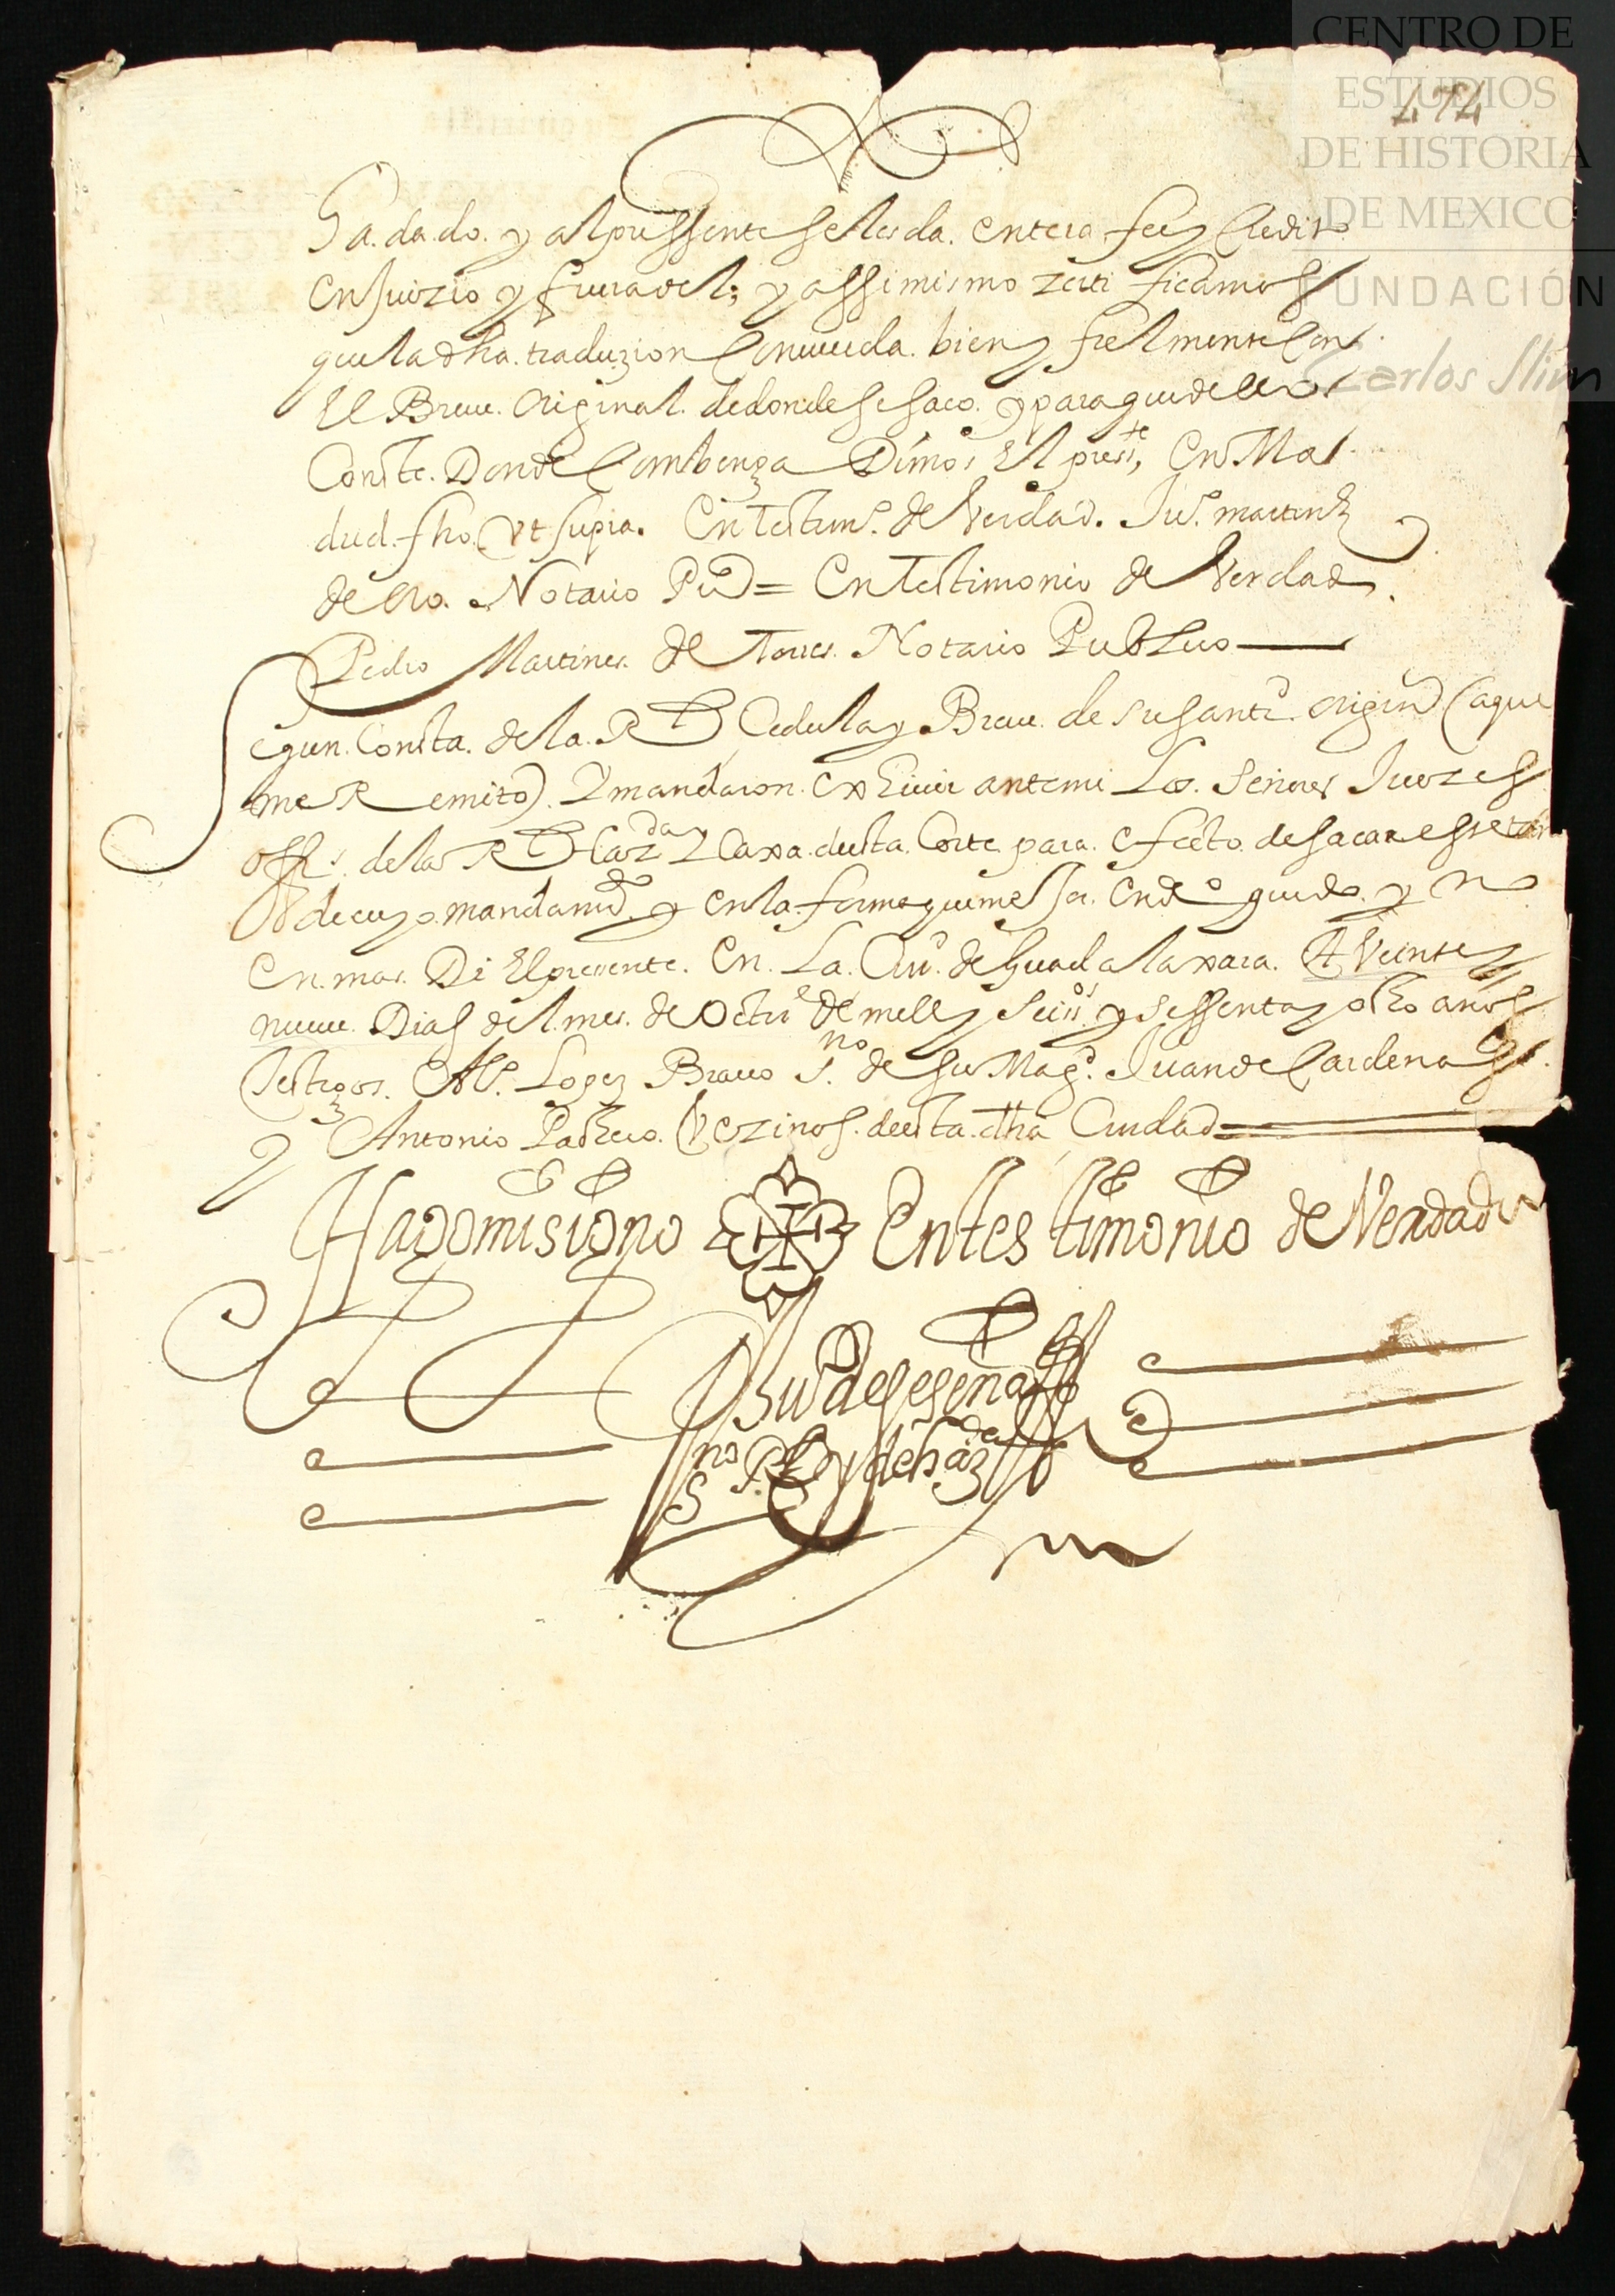 CENTRO DE
ESTUDIOS
DE HISTORIA
DE MEXICO
FUNDACIÓN
Carlos Slim
474
ha dado. y al pressente se les da. entera fee y credito
en Juizio y fuera del; y assimismo zerti ficamos
que la dha. traduzion Conuuerda. bien y fielmente Con
El Breue. Original. de donde se saco. y para que de ello
Conste. Donde Conbenga Dimos El press.te, En Ma
drid. fho. Vt supra. En testim.o de Verdad. Ju.o martinz
de llo. Notario Pu.co = En testimonio de Verdad
Pedro Martines. de Torres. Notario Publico
Segun. Consta. de la. R.l Cedula y Breue. de su Santd. origin.l (a que
me Remito). Y mandaron. exhiuir ante mi Los. Señores Juezes
offs. de la R.l haz.da y Caxa. desta. Corte para. efecto. de sacar este
de cuyo mandam.to y en la. forma que me en d.o quedo. y no
en. mas. Di El presente. En. La. Ciu.d de Guadalaxara. A Veinte y
nueue. Dias del. mes. de Octu.e de mill y Seiss.os y Sessenta y ocho años
Testigos. Al.o Lopez Brauo S.no de su Mag.d Juan de Cardenas
y Antonio Pacheco. Vezinos. desta. dha Ciudad
Hago mi signo En testimonio de Verdad
Ju.o de Seseña
S.no P.co y de haz.da